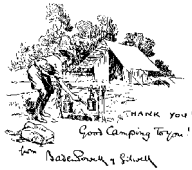 THANK YOU
Good Camping To you!
from
Baden Powell of Gilwell